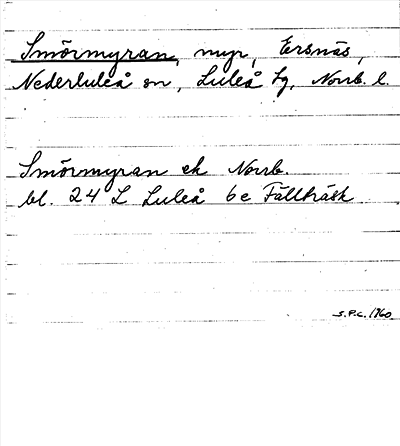 Smörmyran, myr, Ersnäs,
Nederluleå sn, Luleå tg, Norrb. l.
Smörmyran ek Norrb.
bl. 24 L Luleå 6e Fällträsk
S.P.C. 1960